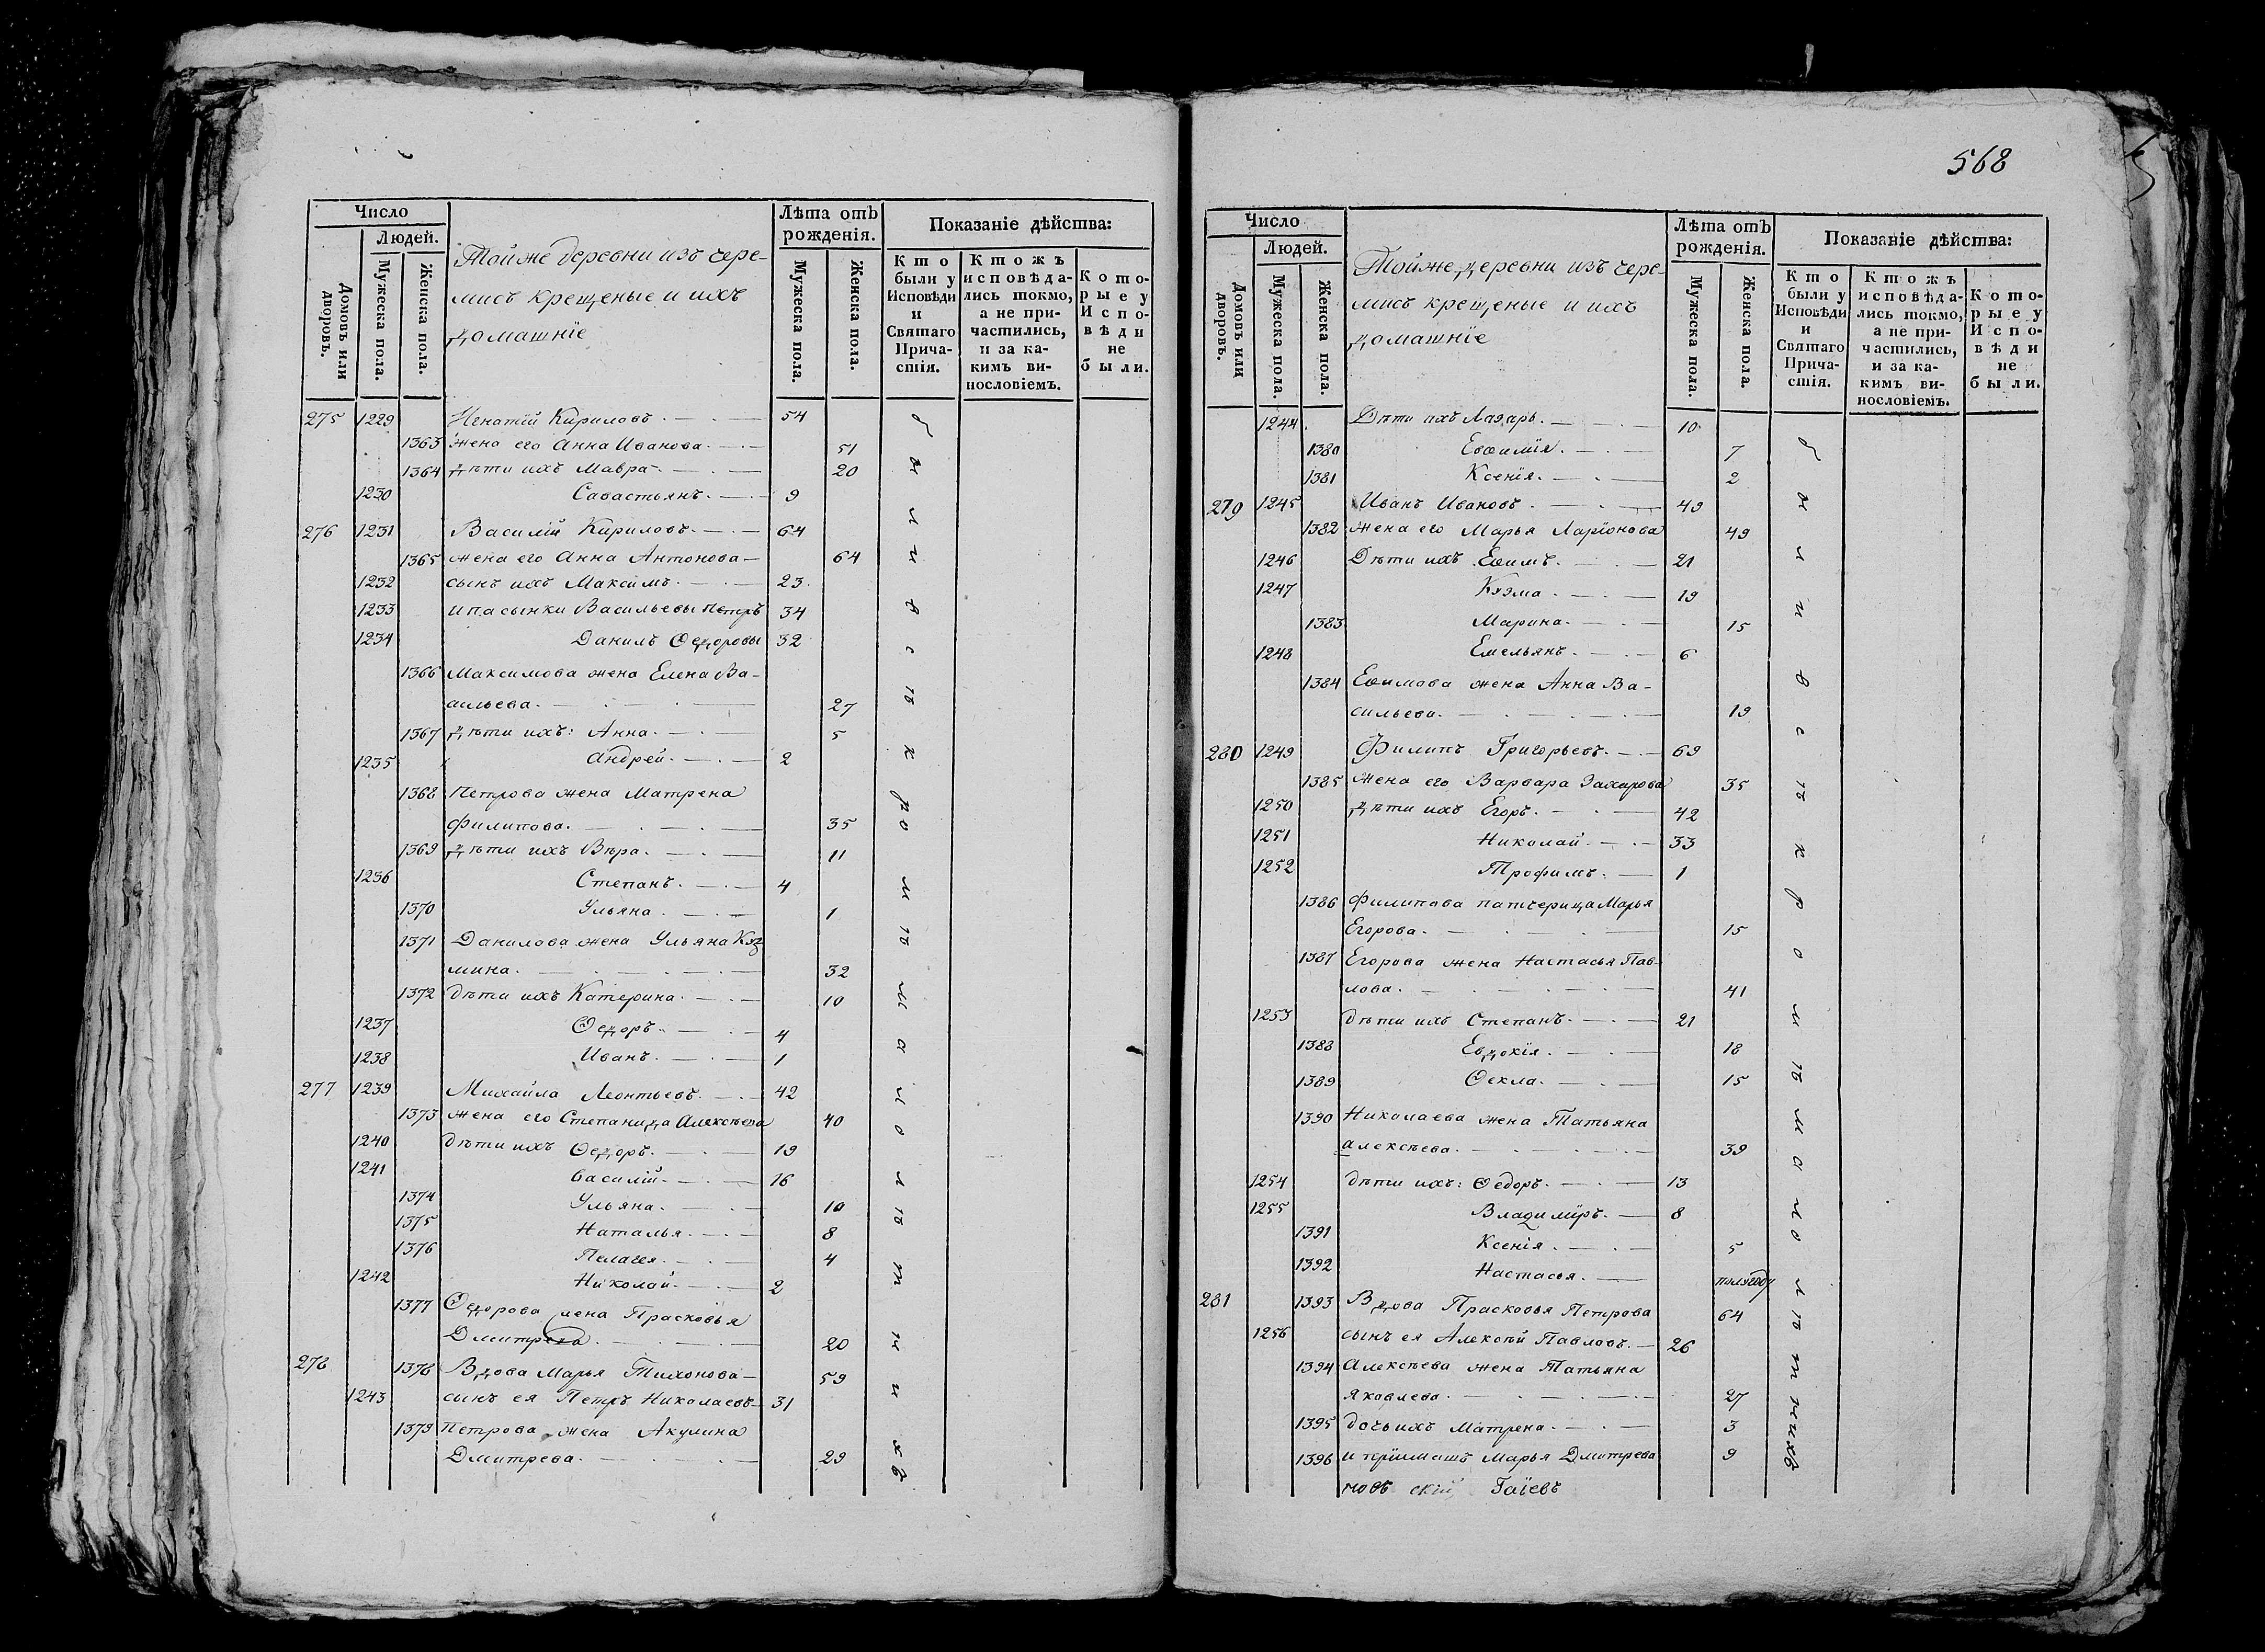 568
Число
Людей.
Домовъ или дворовъ.
Мужеска пола.
Женска пола.
Тойже деревни изъ чере-
мисъ крещеные и ихъ
домашніе
Лѣта отъ рожденія.
Мужеска пола.
Женска пола.
Показаніе дѣйства:
Кто были у Исповѣди и Святаго Прича-стія.
Ктожъ исповѣда-лись токмо, а не при-частились, и за ка-кимъ ви-нословіемъ.
Кото-рые у Испо-вѣди не были.
275 1229 Игнатій Кириловъ. 54
1363 жена его Анна Иванова. 51
1364 дѣти ихъ Мавра 20
1230 Савастьянъ. 9
276 1231 Василій Кириловъ. 64
1365 жена его Анна Антонова 64
1232 сынъ ихъ Максимъ. 23
1233 и пасынки Васильевы Петръ 34
1234 Данилъ Ѳедоровы 32
1366 Максимова жена Елена Ва-
сильева. 27
1367 дѣти ихъ: Анна. 5
1235 Андрей. 2
1368 Петрова жена Матрена
Филипова. 35
1369 дѣти ихъ Вѣра. 11
1236 Степанъ. 4
1370 Ульяна. 1
1371 Данилова жена Ульяна Куз
мина. 32
1372 дѣти ихъ Катерина. 10
1237 Ѳедоръ. 4
1238 Иванъ. 1
277 1239 Михайла Леонтьевъ. 42
1373 жена его Степанида Алексѣева 40
1240 дѣти ихъ Ѳедоръ. 19
1241 Василій. 16
1374 Ульяна. 10
1375 Наталья. 8
1376 Пелагея. 4
1242 Николай. 2
1377 Ѳедорова жена Прасковья
Дмитрева. 20
278 1378 Вдова Марья Тихонова 59
1243 сынъ ея Петръ Николаевъ 31
1379 Петрова жена Акулина
Дмитрева. 29
Число
Людей.
Домовъ или дворовъ.
Мужеска пола.
Женска пола.
Тойже деревни изъ чере-
мисъ крещеные и ихъ
домашніе
Лѣта отъ рожденія.
Мужеска пола.
Женска пола.
Показаніе дѣйства:
Кто были у Исповѣди и Святаго Прича-стія.
Ктожъ исповѣда-лись токмо, а не при-частились, и за ка-кимъ ви-нословіемъ.
Кото-рые у Испо-вѣди не были.
1244 Дѣти ихъ Лазарь. 10
1380 Евѳимія. 7
1381 Ксенія. 2
279 1245 Иванъ Ивановъ. 49
1382 жена его Марья Ларіонова 49
1246 Дѣти ихъ Еѳимъ. 21
1247 Кузма. 19
1383 Марина. 15
1248 Емельянъ. 6
1384 Еѳимова жена Анна Ва-
сильева. 19
280 1249 Филипъ Григорьевъ. 69
1385 жена его Варвара Захарова 35
1250 дѣти ихъ Егоръ. 42
1251 Николай. 33
1252 Трофимъ. 1
1386 Филипова патчерица Марья
Егорова. 15
1387 Егорова жена Настасья Пав-
лова. 41
1253 дѣти ихъ Степанъ. 21
1388 Евдокія. 18
1389 Ѳекла. 15
1390 Николаева жена Татьяна
алексѣева. 39
1254 дѣти ихъ: Ѳедоръ. 13
1255 Владиміръ. 8
1391 Ксенія. 5
1392 Настасья. полугоду
281 1393 Вдова Прасковья Петрова 64
1256 сынъ ея Алексѣй Павловъ. 26
1394 Алексѣева жена Татьяна
яковлева. 27
1395 дочь ихъ Матрена. 3
1396 и Марья Дмитрева 9